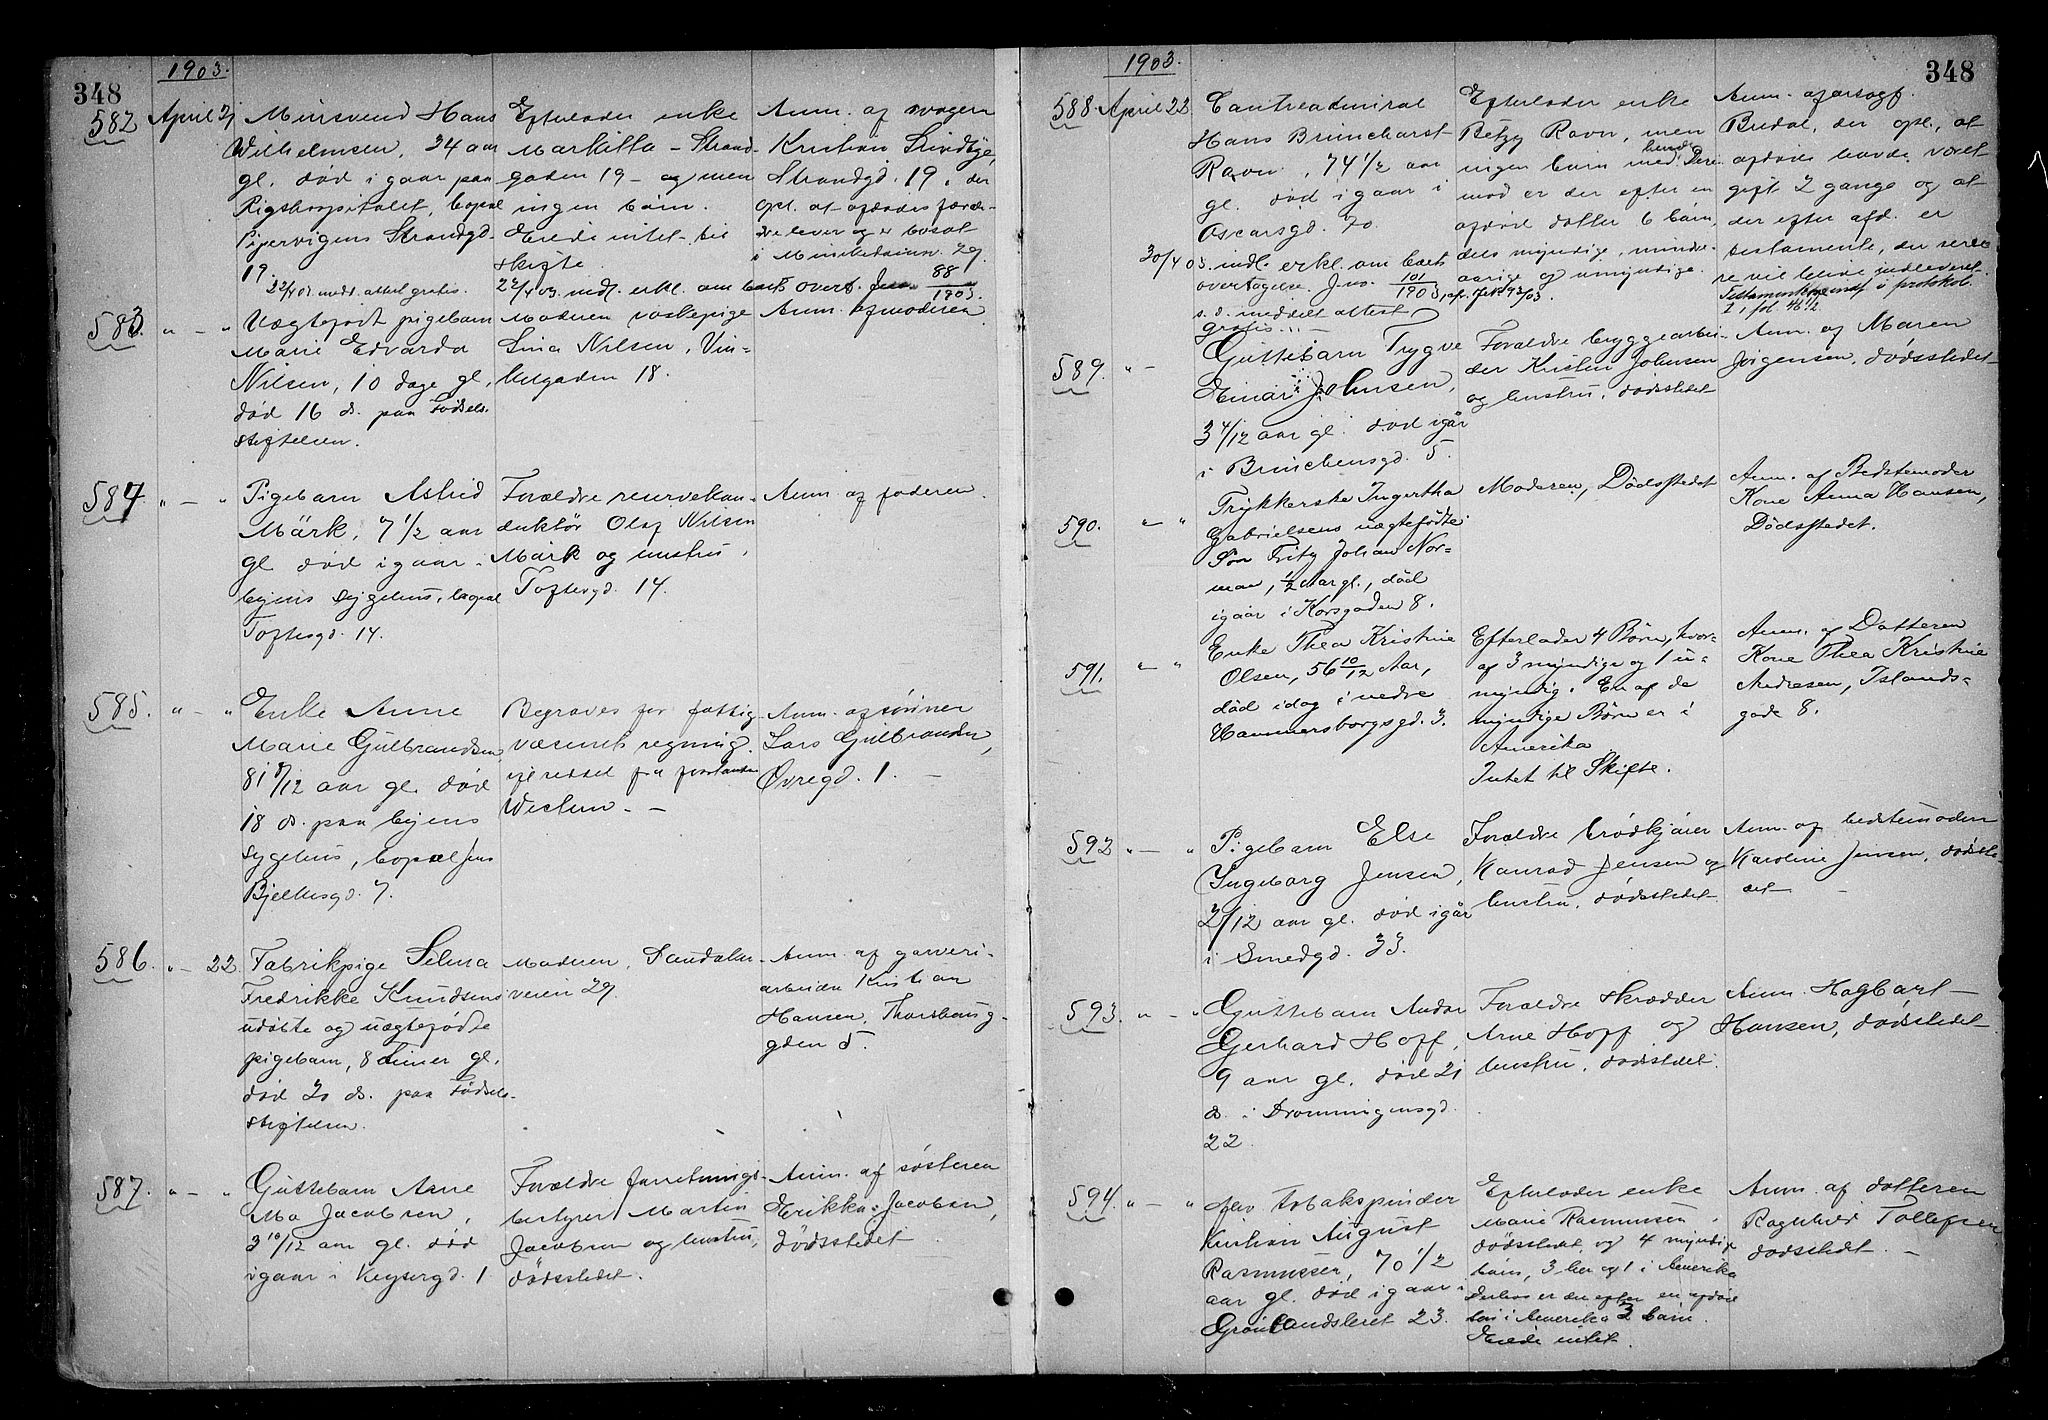 348
1903.
582 April 21
Mursvend Hans
Wilhelmsen, 24 aar
gl. død i gaar paa
Rigshospitalet, bopæl
Pipervigens Strandgd.
19.
22/4 03. medd. attest gratis.
Efterlader enke
– Strand-
gaden 19 – og men
ingen børn.
Eiede intet til
skifte.
22/4 03. indl. erkl. om boets overt. Jno. 88/1903.
Anm. af svogeren
Kristian
Strandgd. 19, der
opl. at afdødes foræl-
dre lever og er bosat
i 29.
583. " – "
Uægtefødt pigebarn
Marie Edvarda
Nilsen, 10 dage gl.,
død 16 ds. paa Fødsels-
stiftelsen.
Moderen vaskepige
Lina Nilsen, Vin-
kelgaden 18.
Anm. af moderen
584. " – "
Pigebarn Astrid
Märk, 7 1/2 aar
gl. død i gaar i
byens sygehus, bopæl
Toftesgd. 14.
Forældre reservekon-
duktør Olaf Nilsen
Märk og hustru,
Toftesgd. 14.
Anm. af faderen.
585. " – "
Enke Anne
Marie Gulbrandsen,
81 8/12 aar gl. død
18 ds. paa byens
sygehus, bopæl Jens
Bjelkesgd. 7.
Begraves for fattig-
væsenets regning
ifl. seddel fra forstander
–
Anm. af sønnen
Lars Gulbrandsen,
Øvregd. 1. –
586. " – 22.
Fabrikpige Selma
Fredrikke Knudsens
udøbte og uægtefødte
pigebarn, 8 timer gl.
død 20 ds. paa Fødsels-
stiftelsen.
Moderen, Sandaker-
veien 29.
Anm. af garveri-
arbeider Kristian
Hansen, Thorshaug-
gden 5.
587. " – "
Guttebarn Arne
Mo Jacobsen,
3 10/12 aar gl. død
igaar i Keysersgd. 1
Forældre forretnings-
bestyrer Martin
Jacobsen og hustru,
dødsstedet.
Anm. af søsteren
Erikka Jacobsen,
dødsstedet
348
1903.
588 April 22
Contreadmiral
Hans Brinchorst
Ravn, 74 1/2 aar
gl. død i gaar i
Oscarsgd. 70.
30/4 03. indl. erkl. om boets
overtagelse. Jno. 101/1903,
s. d. meddelt attest
gratis.
Efterlader enke
Betzy Ravn, men
ingen barn med hende. Deri-
mod er der efter en
afdød datter 6 børn,
dels myndige, mindre-
aarige og umyndige.
Anm. af
Bredal, der opl., at
afdøde havde været
gift 2 gange og at
der efter afd. er
testamente, der sene-
re vil blive indleveret.
Testamentet indf. i protokol
I, fol. 46 1/2.
589. " –
Guttebarn Trygve
Einar Johnsen,
3 4/12 aar gl. død igår
i Brinchensgd. 5.
Forældre bryggearbei-
der Kristen Johnsen
og hustru, dødsstedet
Anm. af Maren
Jørgensen, dødsstedet
590. " – "
Trykkerske Ingertha
Gabrielsens uægtefødte
Søn Fritz Johan Nor-
man, 1/2 Aar gl., død
igaar i Korsgaden 8.
Moderen, Dødsstedet
Anm. af Bedstemoder
Kone Anna Hansen,
Dødsstedet.
591. " – "
Enke Thea Kristine
Olsen, 56 10/12 Aar,
død idag i nedre
Hammersborgsgd. 3.
Efterlader 4 Børn, hvor-
af 3 myndige og 1 u-
myndig. En af de
myndige Børn er i
Amerika
Intet til Skifte.
Anm. af Datteren
Kone Thea Kristine
Andresen, Islands-
gade 8.
592 " – "
Pigebarn Else
Ingeborg Jensen,
2/12 aar gl. død igår
i Smedgd. 33.
Forældre brødkjører
Konrad Jensen og
hustru, dødsstedet
Anm. af bedstemoderen
Karoline Jensen, dødsste-
det –
593. " – "
Guttebarn Andor
Gerhard Hoff,
9 aar gl. død 21
ds. i Dronningensgd.
22.
Forældre skrædder
Arne Hoff og
hustru, dødsstedet.
Anm. Hagbart
Hansen, dødsstedet
594. " – "
Forhv. tobakspinder
Kristian August
Rasmussen, 70 1/2
aar gl. død igaar i
Grønlandsleret 23.
Efterlader enke
Marie Rasmussen,
dødsstedet, og 4 myndige
børn, 3 her og 1 i Amerika
Derhos er der efter en afdød
søn i Amerika 3 børn.
Eiede intet.
Anm. af datteren
Ragnhild Tollefsen
dødsstedet. –